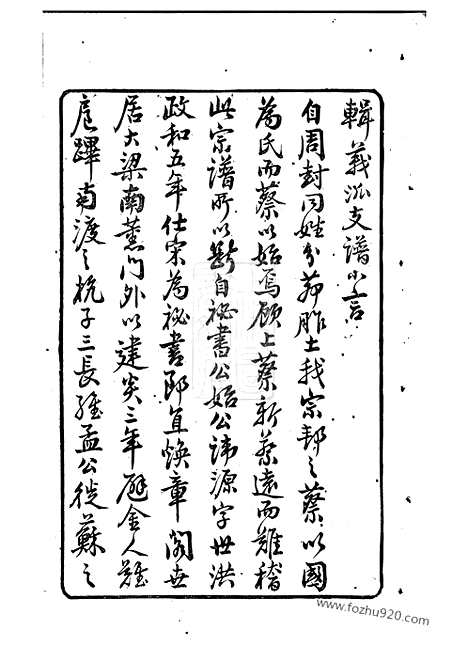 輯義派支譜小言
自周封同姓分茅胙土我宗邦之蔡以國
為氏而蔡以始焉顧上蔡新蔡遠而難稽
此宗譜所以斷自祕書公始公諱源字世洪
政和五年仕宋為祕書郎直煥章閣世
居大梁南薰門外以建炎三年避金人難
扈蹕南渡之杭子三長維孟公徙蘇之
www.fozhu920.com